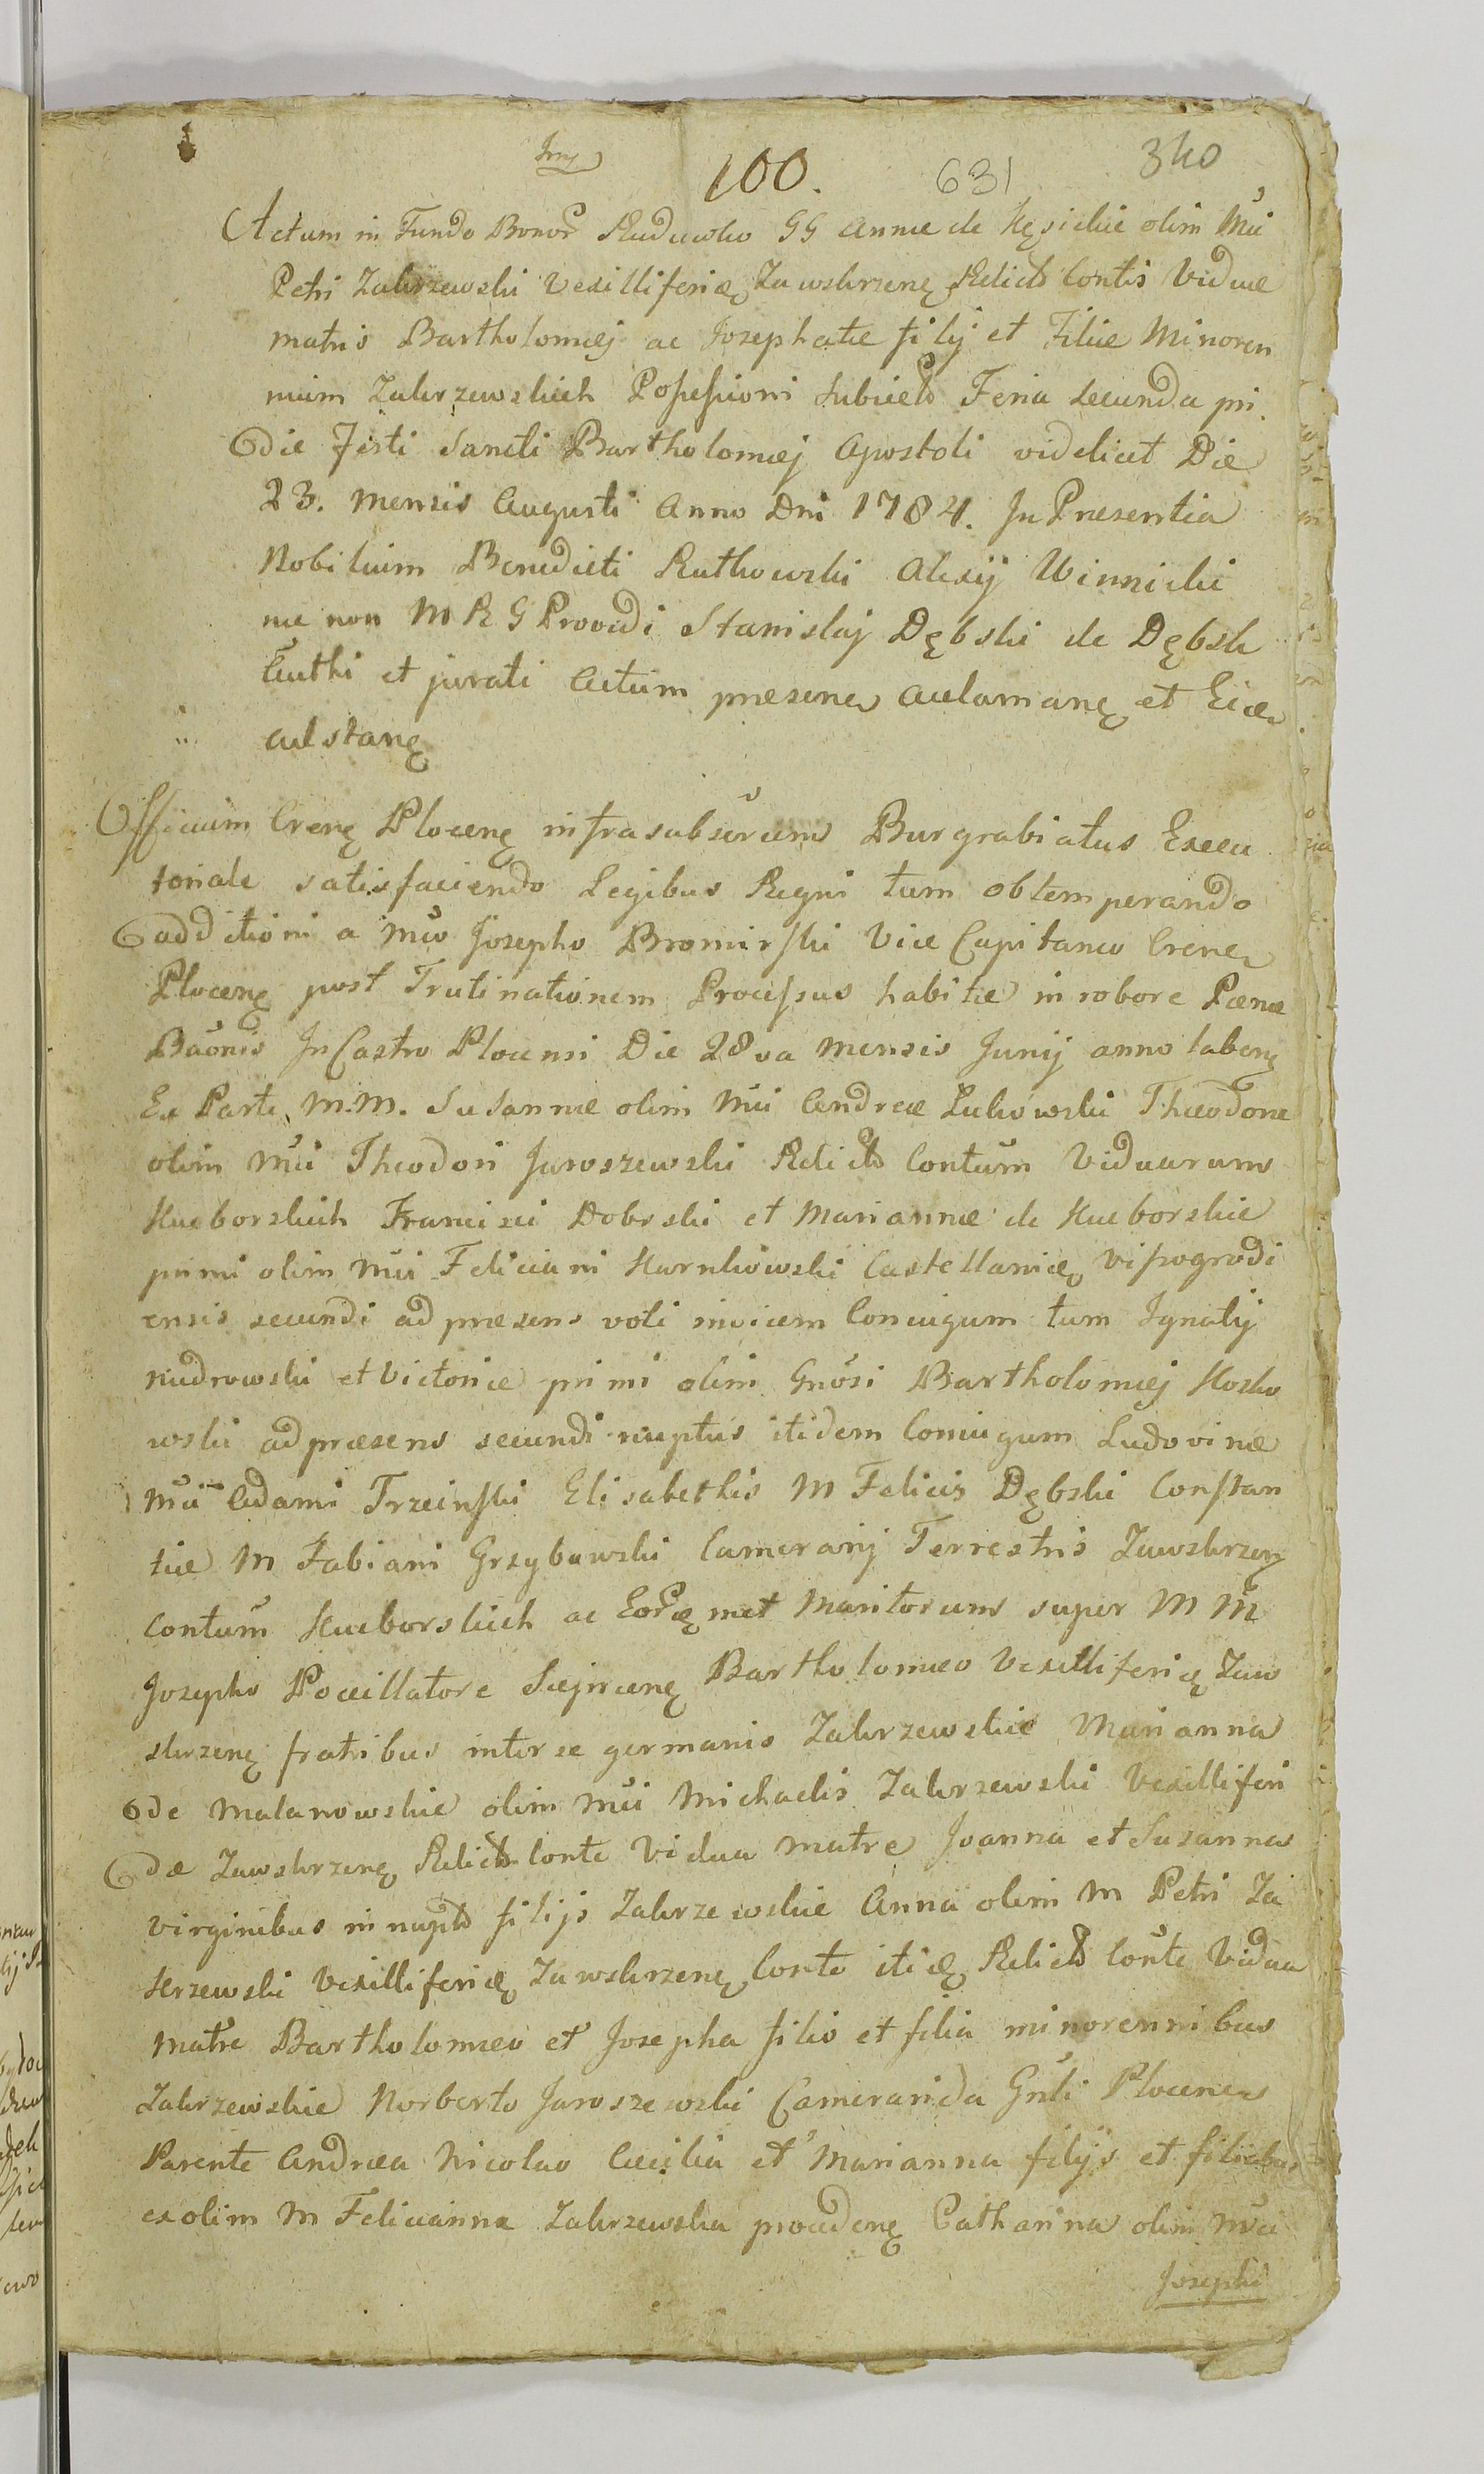 100. 631 340
Actum in Fundo Bonor Rudowko GG Annæ de Kęsickie olim Mũi
Petri Zakrzewski Vexilliferidę Zawskrzenę Relictæ Contis Viduæ
matris Bartholomæj ac Josephatæ filij et Filiæ Minoren
nium Zakrzewskich Possessioni subiectis Feria secunda pri
die Festi Sancti Bartholomæj Apostoli videlicet Die
23. Mensis Augusti Anno Dni 1784. In Præsentia
Nobilium Benedicti Rutkowski Alexij Winnicki
nec non M R G Providi Stanislaj Dębski de Dębsk
Authi et jurati Actum præsens aclamanę et Eidem
adstanę
Officium Crenę Plocenę infrasubscriptum Burgrabiatus Execu
toriale satisfaciendo Legibus Regni tum obtemperando
addictioni a Mũo Josepho Bromirski Vice Capitaneo Crene
Plocenę post Trutinationem Processus habitæ in robore Pœnæ
Bãonis In Castro Plocensi Die 28va Mensis Junij anno labenę
Ex Parte M.M. Susannæ olim Mũi Andreæ Łukowski Theodoræ
olim Mũi Theodori Jaroszewski Relict Contum Viduarum
Kucborskich Francisci Dobrski et Mariannæ de Kucborskie
primi olim Mũi Feliciani Karnkowski Castellanidę Vissogrodi
ensis secundi ad præsens voti invicem Coniugum tum Ignatij
Nudrowski et Victoriæ primi olim Gnõsi Bartholomæj Kosko
wski ad præsens secundi nuptus itidem Coniugum Ludovinæ
Mũi Adami Trzcinski Elisabethis M Felicis Dębski Constan
tiæ M Fabiani Grzybowski Camerarij Terrestris Zawskrzenę
Contum Kucborskich ac Eorũdęmet Maritorum super M M
Josepho Pocillatore Siejrcenę Bartholomæo Vexilliferidę Zaw
skrzenę fratribus inter se germanis Zakrzewskie Marianna
de Malanowskie olim Mũi Michaelis Zakrzewski Vexilliferi
dæ Zawskrzenę Relict Conte Vidua matre Joanna et Susanna
virginibus innupt filijs Zakrzewskie Anna olim M Petri Za
krzewski Vexilliferidę Zawskrzenę Conte itidę Relict Conte Vidua
matre Bartholomæo et Josepha filio et filia minorennibus
Zakrzewskie Norberto Jaroszewski Camerarida Gnli Plocene
Parente Andrea Nicolao Cæcilia et Marianna filijs et filiabus
ex olim M Felicianna Zakrzewska procedenę Catharina olim Mũi
Josephi